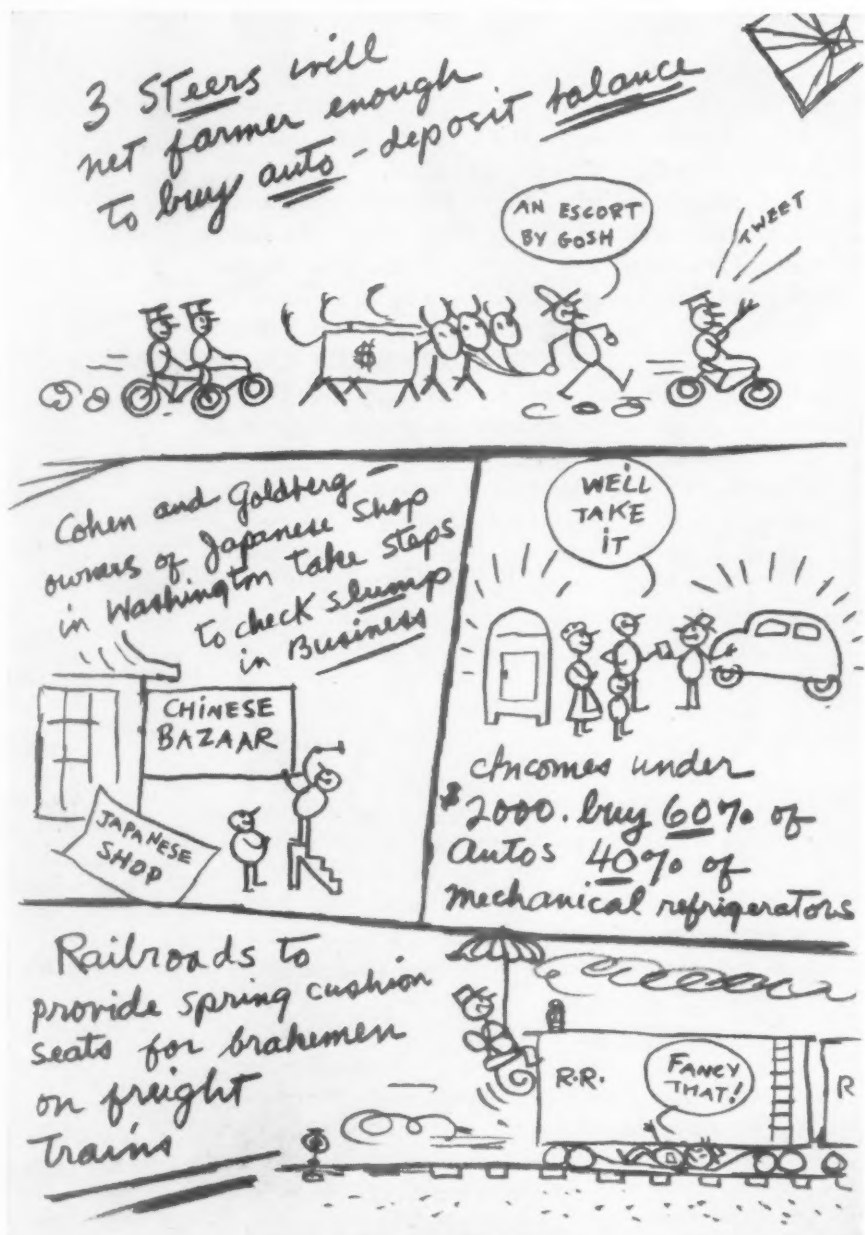 3 STeers will
net farmer enough
to buy auto - deposit balance
AN ESCORT
BY GOSH
TWEET
$
Cohen and Goldberg -
owners of Japanese Shop
in Washington take steps
to check slump
in Business
CHINESE
BAZAAR
JAPANESE
SHOP
WE'LL
TAKE
IT
Incomes under
$2000. buy 60% of
autos 40% of
mechanical refrigerators
Railroads to
provide spring cushion
seats for brakemen
on freight
Trains
R.R.
FANCY
THAT!
R